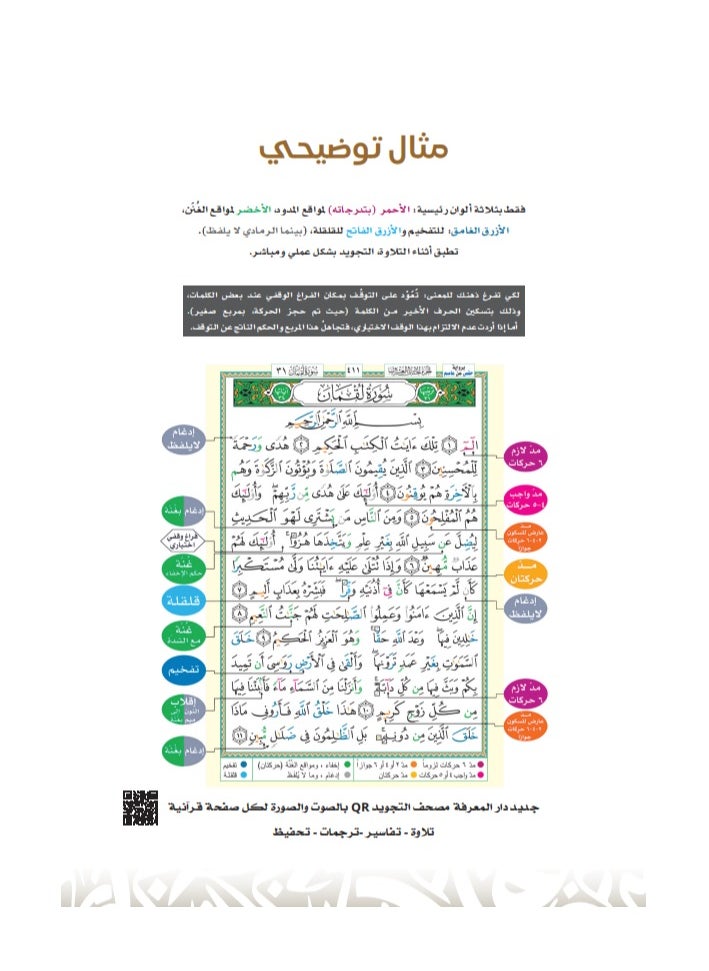 مثال توضيحي
فقط بثلاثة ألوان رئيسية: الأحمر (بتدرجاته) لمواقع المدود، الأخضر لمواقع الغُنَن،
الأزرق الغامق: للتفخيم والأزرق الفاتح للقلقلة، (بينما الرمادي لا يلفظ).
تطبق أثناء التلاوة، التجويد بشكل عملي ومباشر.
لكي تفرغ ذهنك للمعنى: تُعَوَّد على التوقُّف بمكان الفراغ الوقفي عند بعض الكلمات،
وذلك بتسكين الحرف الأخير من الكلمة (حيث تم حجز الحركة، بمربع صغير).
أما إذا أردت عدم الالتزام بهذا الوقف الاختياري، فتجاهلْ هذا المربع والحكم الناتج عن التوقف.
سُورَةُ لُقْمَان ٣١
٤١١
برواية
حفص عن عاصم
سُورَةُ لُقْمَانَ
بِسْمِ اللَّهِ الرَّحْمَٰنِ الرَّحِيمِ
الٓمٓ ١ تِلْكَ ءَايَٰتُ الْكِتَٰبِ الْحَكِيمِ ٢ هُدًى وَرَحْمَةً
لِّلْمُحْسِنِينَ ٣ الَّذِينَ يُقِيمُونَ الصَّلَوٰةَ وَيُؤْتُونَ الزَّكَوٰةَ وَهُم
بِالْءَاخِرَةِ هُمْ يُوقِنُونَ ٤ أُولَٰٓئِكَ عَلَىٰ هُدًى مِّن رَّبِّهِمْ وَأُولَٰٓئِكَ
هُمُ الْمُفْلِحُونَ ٥ وَمِنَ النَّاسِ مَن يَشْتَرِى لَهْوَ الْحَدِيثِ
لِيُضِلَّ عَن سَبِيلِ اللَّهِ بِغَيْرِ عِلْمٍ وَيَتَّخِذَهَا هُزُوًا أُولَٰٓئِكَ لَهُمْ
عَذَابٌ مُّهِينٌ ٦ وَإِذَا تُتْلَىٰ عَلَيْهِ ءَايَٰتُنَا وَلَّىٰ مُسْتَكْبِرًا
كَأَن لَّمْ يَسْمَعْهَا كَأَنَّ فِىٓ أُذُنَيْهِ وَقْرًا فَبَشِّرْهُ بِعَذَابٍ أَلِيمٍ ٧
إِنَّ الَّذِينَ ءَامَنُوا وَعَمِلُوا الصَّٰلِحَٰتِ لَهُمْ جَنَّٰتُ النَّعِيمِ ٨
خَٰلِدِينَ فِيهَا وَعْدَ اللَّهِ حَقًّا وَهُوَ الْعَزِيزُ الْحَكِيمُ ٩ خَلَقَ
السَّمَٰوَٰتِ بِغَيْرِ عَمَدٍ تَرَوْنَهَا وَأَلْقَىٰ فِى الْأَرْضِ رَوَٰسِىَ أَن تَمِيدَ
بِكُمْ وَبَثَّ فِيهَا مِن كُلِّ دَآبَّةٍ وَأَنزَلْنَا مِنَ السَّمَآءِ مَآءً فَأَنۢبَتْنَا فِيهَا
مِن كُلِّ زَوْجٍ كَرِيمٍ ١٠ هَٰذَا خَلْقُ اللَّهِ فَأَرُونِى مَاذَا
خَلَقَ الَّذِينَ مِن دُونِهِ بَلِ الظَّٰلِمُونَ فِى ضَلَٰلٍ مُّبِينٍ ١١
مدّ لازم
٦ حركات
مد واجب
٤-٥ حركات
مد
عارض للسكون
٢-٤-٦ حركات
جوازاً
مد
حركتان
إدغام
لايلفظ
مدّ لازم
٦ حركات
مد
عارض للسكون
٢-٤-٦ حركات
جوازاً
إدغام
لايلفظ
إدغام بغنة
فراغ وقفي
اختياري
غُنّة
حكم الإخفاء
قلقلة
غُنّة
مع الشدة
تفخيم
إقلاب
النون إلى
ميم بغنة
إدغام بغُنة
مدّ ٦ حركات لزوماً
مدّ ٢ أو ٤ أو ٦ جوازاً
إخفاء، ومواقع الغُنَّة (حركتان)
تفخيم
مدّ واجب ٤ أو ٥ حركات
مدّ حركتان
إدغام، وما لا يُلفَظ
قلقلة
جديد دار المعرفة مصحف التجويد QR بالصوت والصورة لكل صفحة قرآنية
تلاوة - تفاسير - ترجمات - تحفيظ